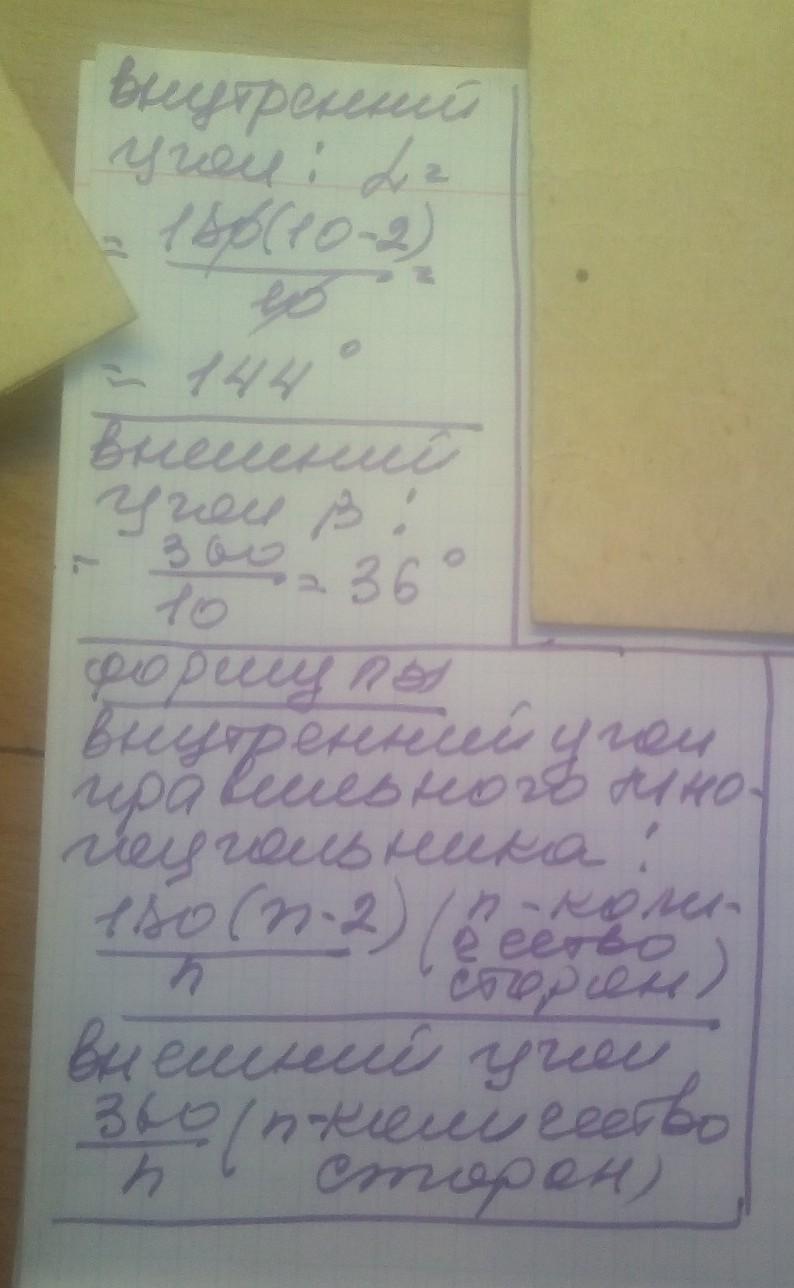 внутренний
угол: α =
= 180(10-2)
10 =
= 144°
внешний
угол β:
- 360
10 = 36°
формулы
внутренний угол
правильного мно-
гоугольника:
180(n-2) (n-коли-
n чество
сторон)
внешний угол
360 (n-количество
n сторон)